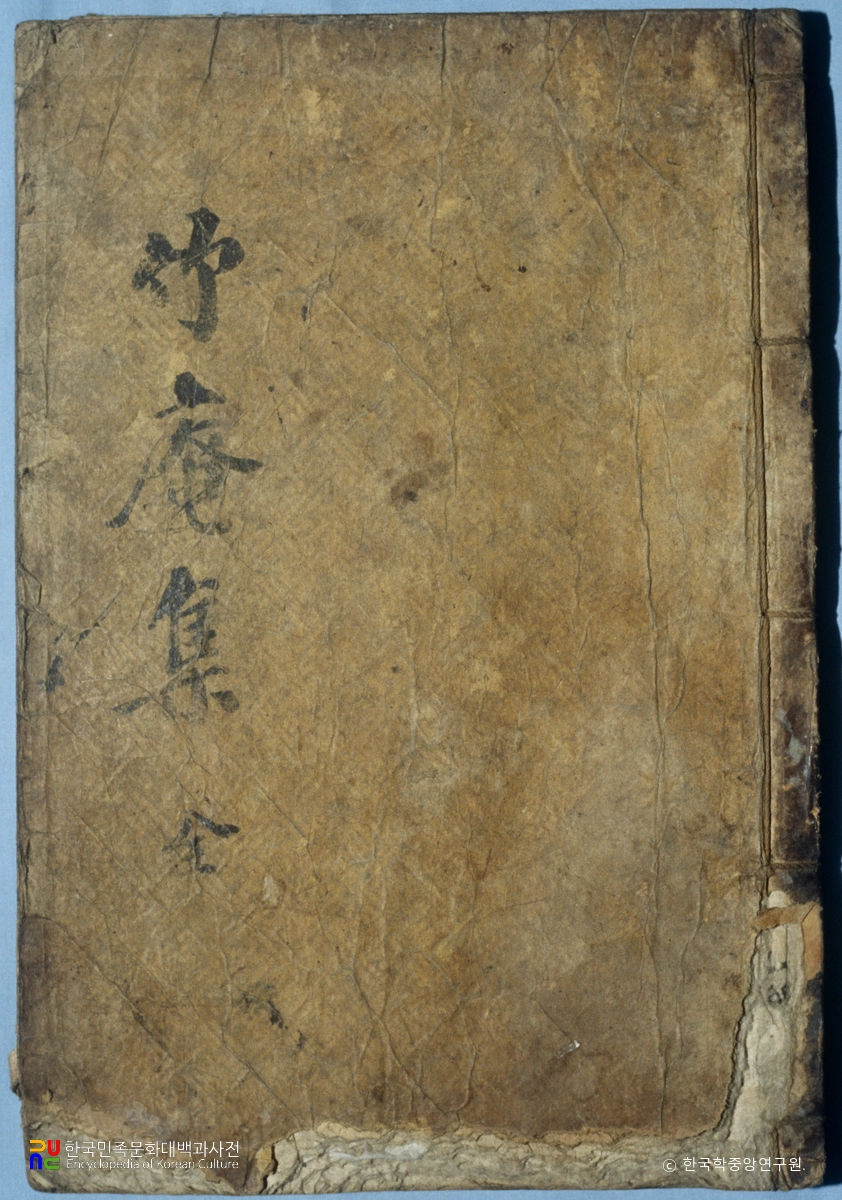 竹庵集 全
한국민족문화대백과사전
Encyclopedia of Korean Culture
© 한국학중앙연구원.